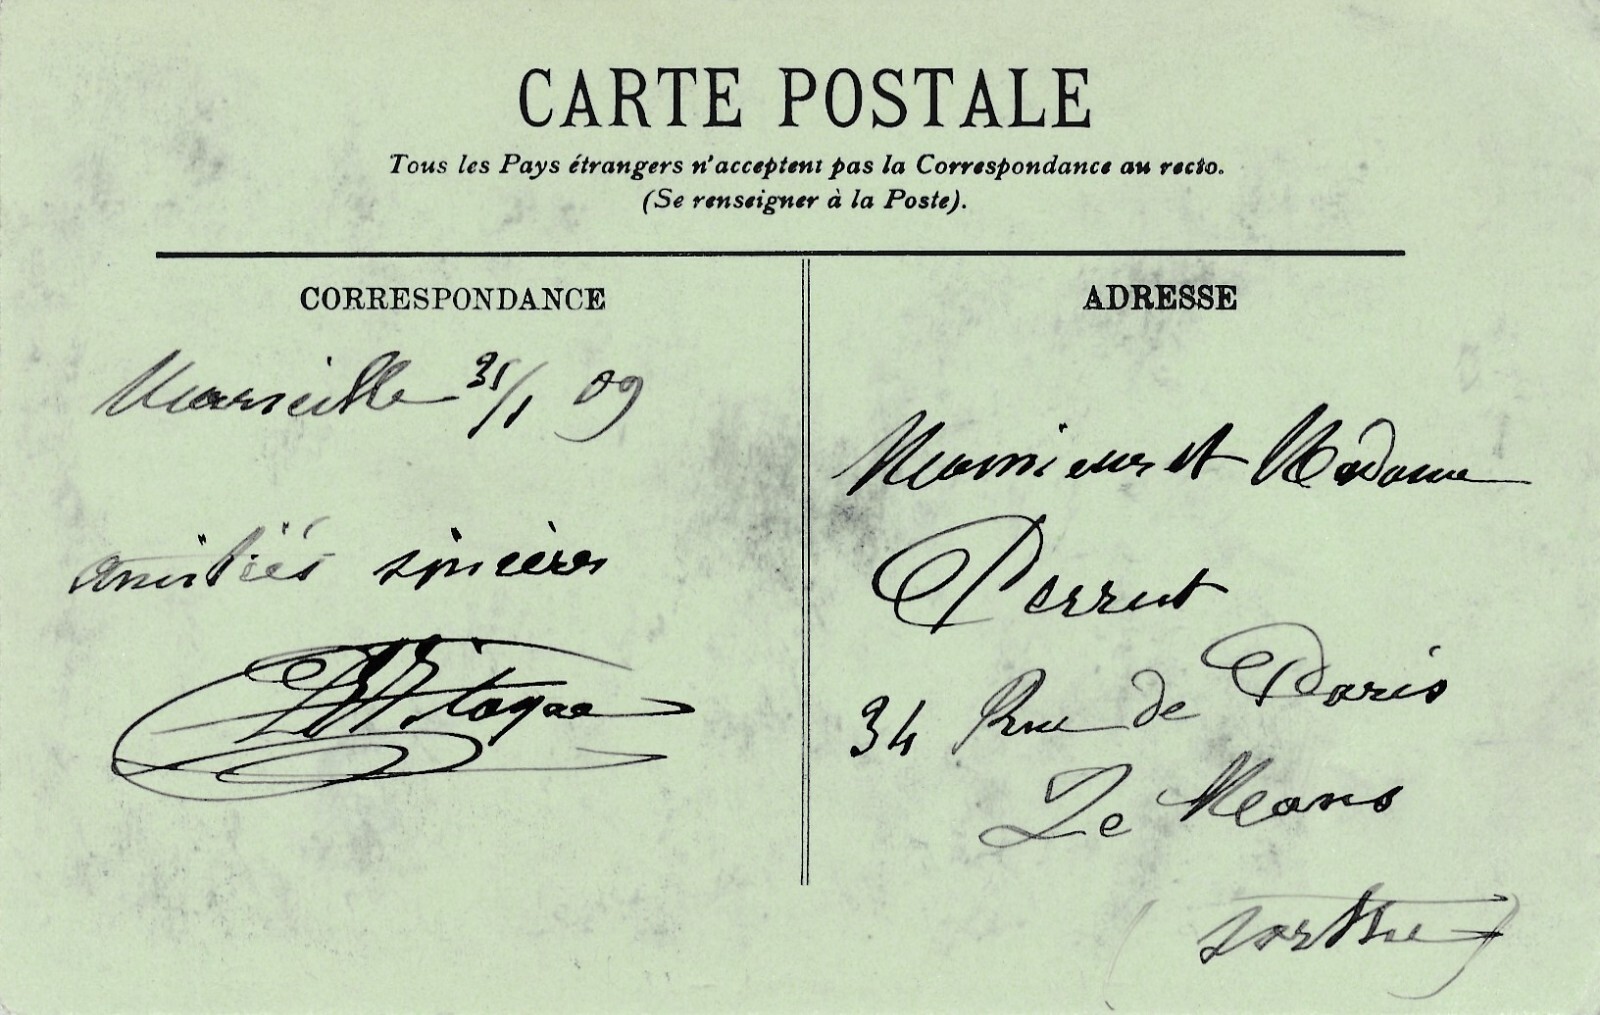 CARTE POSTALE
Tous les Pays étrangers n'acceptent pas la Correspondance au recto.
(Se renseigner à la Poste).
CORRESPONDANCE
Marseille 31/1 09
amitiés sincères
ADRESSE
Monsieur et Madame
Perrut
34 Rue de Paris
Le Mans
(Sarthe)